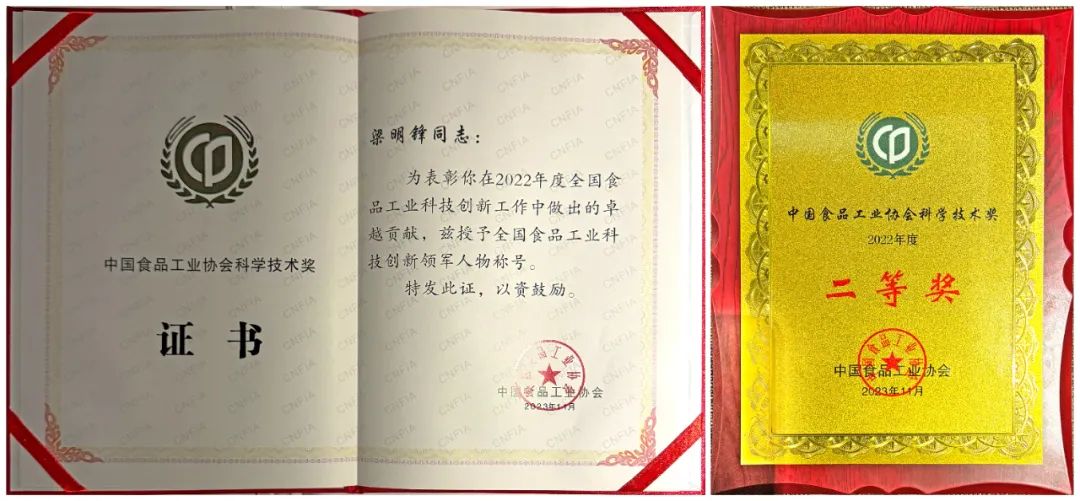 中国食品工业协会科学技术奖
证书
梁明锋同志：
为表彰你在2022年度全国食
品工业科技创新工作中做出的卓
越贡献，兹授予全国食品工业科
技创新领军人物称号。
特发此证，以资鼓励。
中国食品工业协会
2023年11月
CNFIA
中国食品工业协会科学技术奖
2022年度
二等奖
中国食品工业协会
中国食品工业协会
2023年11月